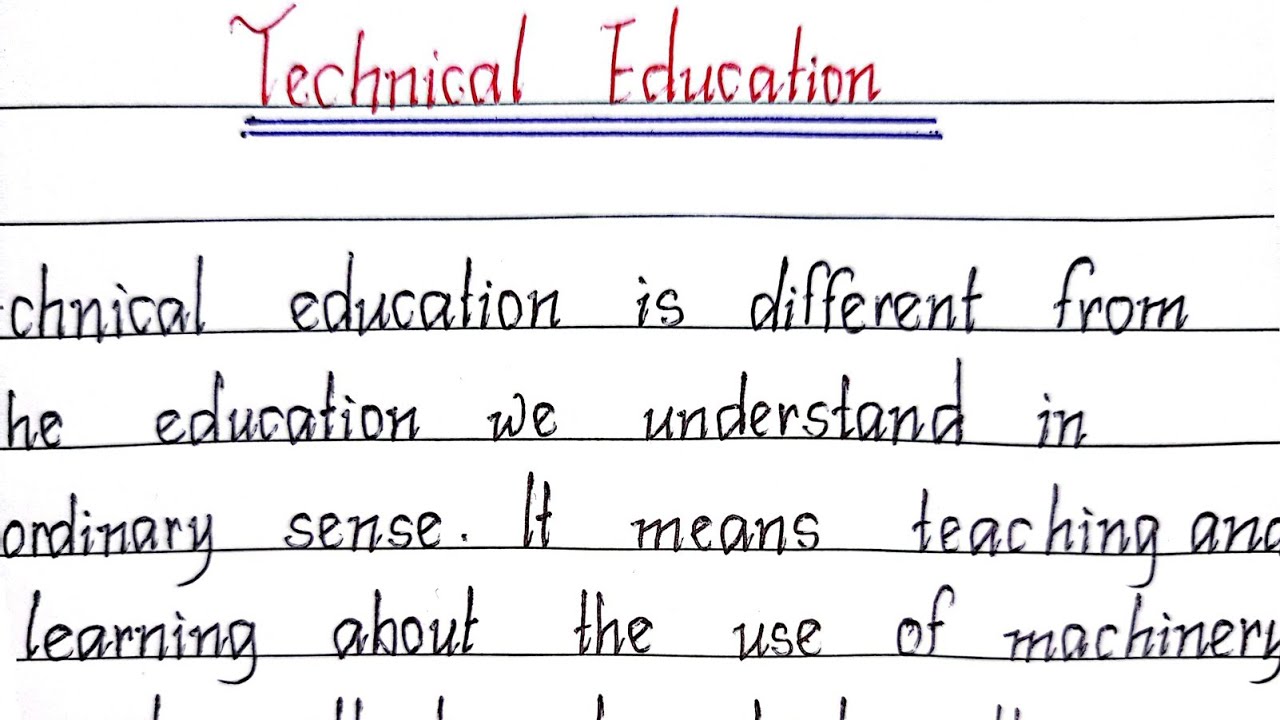 Technical Education
chnical education is different from
he education we understand in
ordinary sense. It means teaching and
learning about the use of machinery